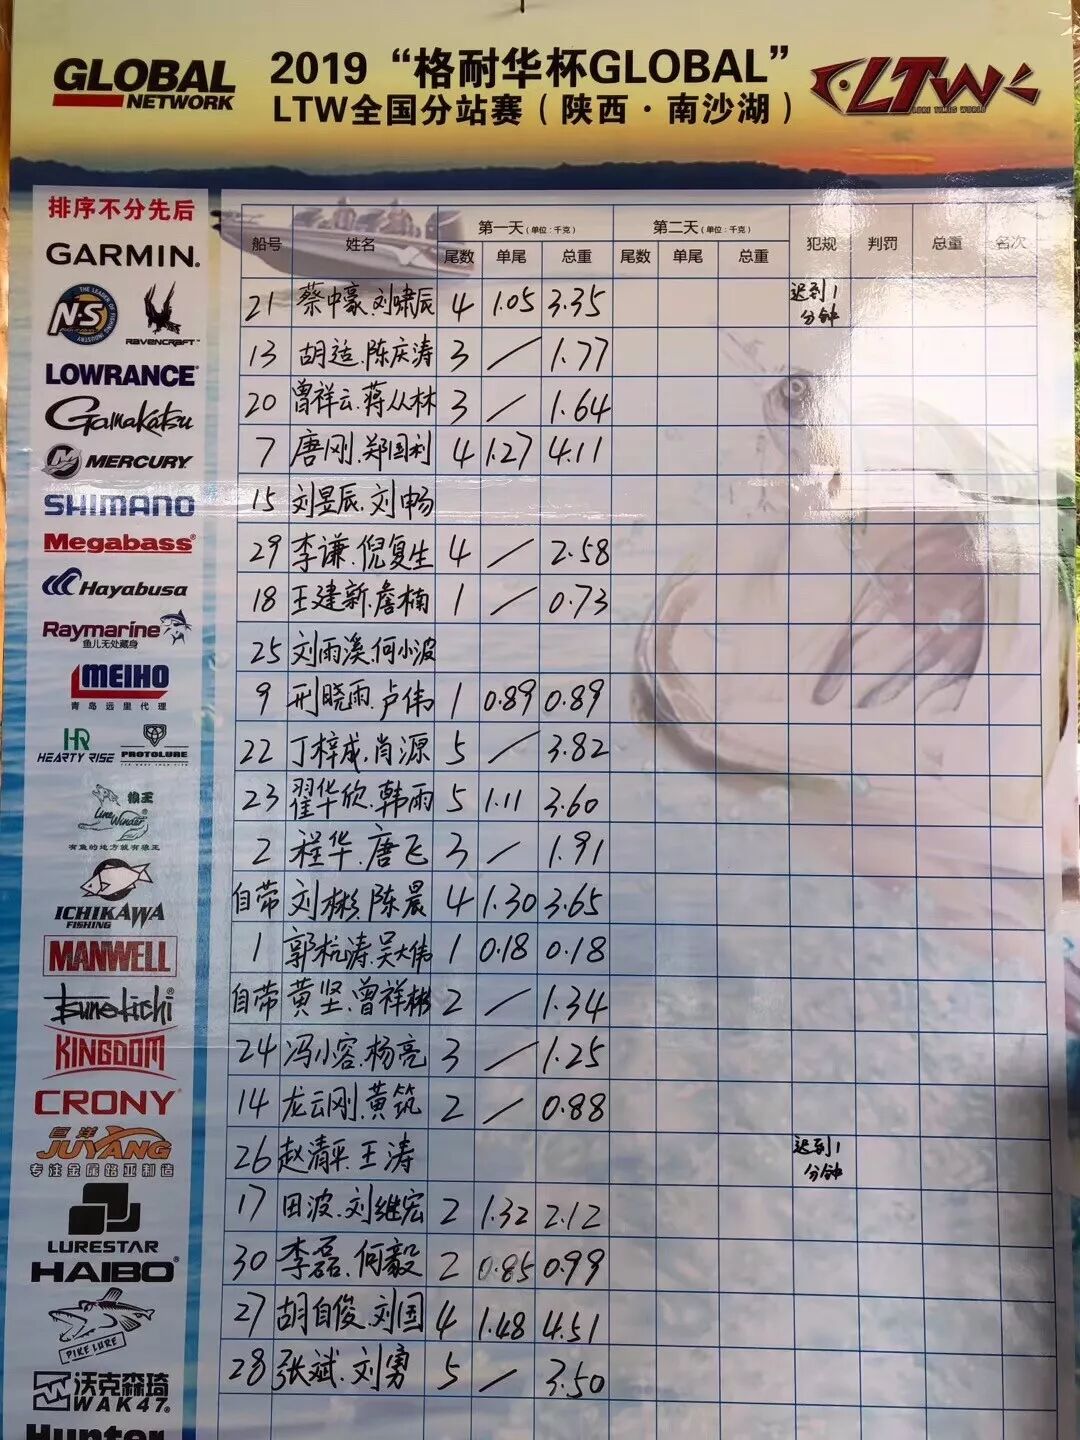 GLOBAL
NETWORK
2019 “格耐华杯GLOBAL”
LTW全国分站赛（陕西·南沙湖）
LTW
LURE TIMES WORLD
排序不分先后
GARMIN.
N·S
RAVENCRAFT
LOWRANCE
Gamakatsu
MERCURY
SHIMANO
Megabass
Hayabusa
Raymarine
鱼儿无处藏身
MEIHO
青岛远里代理
HR
HEARTY RISE
PROTOLURE
狼王
Line Winder
有鱼的地方就有狼王
ICHIKAWA
FISHING
MANWELL
Tsunekichi
KINGDOM
CRONY
巨洋
JUYANG
专注金属路亚制造
LURESTAR
HAIBO
PIKE LURE
沃克森琦
WAK47
Hunter
船号 姓名 第一天（单位：千克） 第二天（单位：千克） 犯规 判罚 总重 名次
尾数 单尾 总重 尾数 单尾 总重
21 蔡中豪.刘啸辰 4 1.05 3.35 迟到1分钟
13 胡适.陈庆涛 3 / 1.77
20 曾祥云.蒋从林 3 / 1.64
7 唐刚.郑国利 4 1.27 4.11
15 刘昱辰.刘申畅
29 李谦.倪复生 4 / 2.58
18 王建新.詹楠 1 / 0.73
25 刘雨溪.何小波
9 刑晓雨.卢伟 1 0.89 0.89
22 丁梓成.肖源 5 / 3.82
23 翟华欣.韩雨 5 1.11 3.60
2 程华.唐飞 3 / 1.91
自带 刘彬.陈晨 4 1.30 3.65
1 郭杭涛.吴大伟 1 0.18 0.18
自带 黄坚.曾祥彬 2 / 1.34
24 冯小容.杨亮 3 / 1.25
14 龙云刚.黄筑 2 / 0.88
26 赵清平.王涛 迟到1分钟
17 田波.刘继宏 2 1.32 2.12
30 李磊.何毅 2 0.85 0.99
27 胡自俊.刘国 4 1.48 4.51
28 张斌.刘勇 5 / 3.50